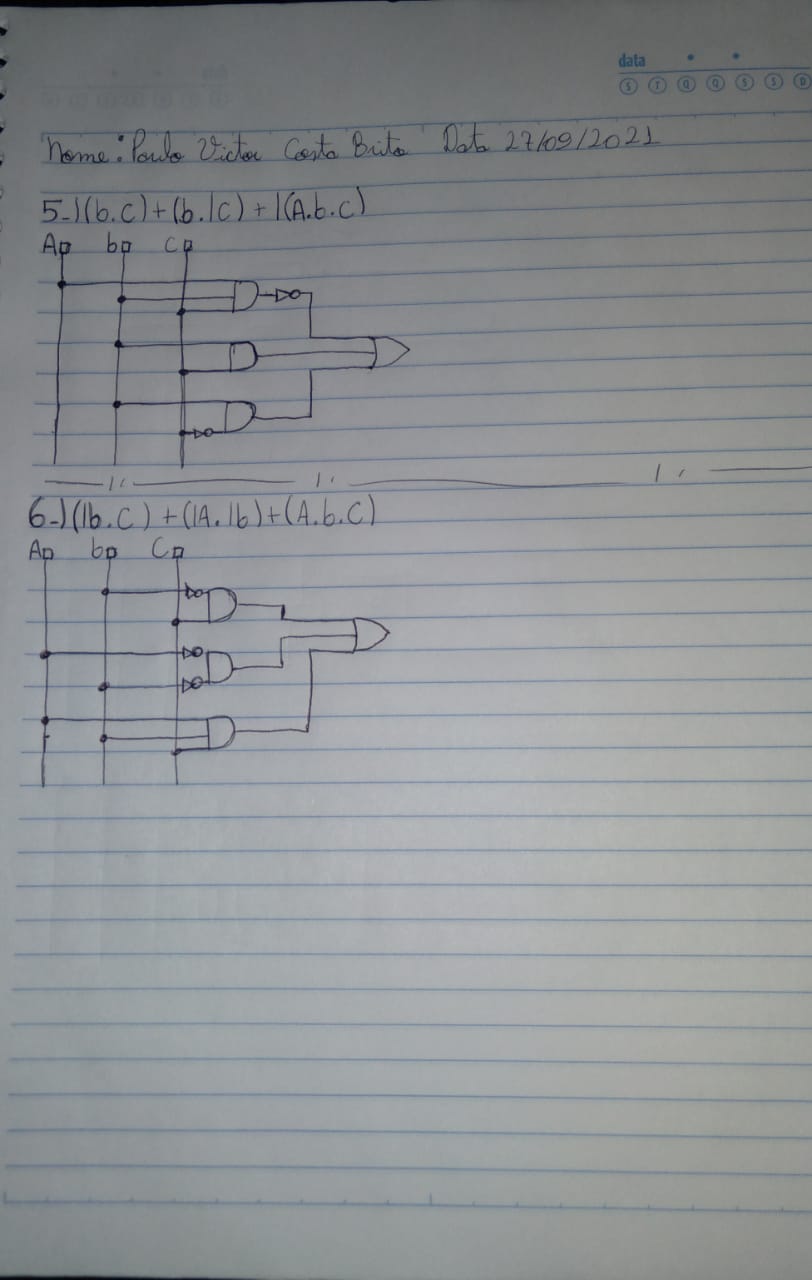 data
S T Q Q S S D
Nome: Paulo Victor Costa Brito Data 27/09/2021
5-)(b.c)+(b./c)+/(A.b.c)
A b C
6-)(/b.C)+(/A./b)+(A.b.C)
A b C